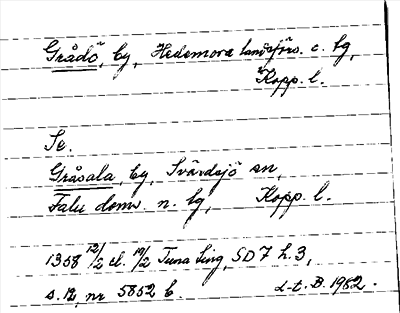 Grådö, by, Hedemora landsförs. o. tg,
Kopp. l.
Se.
Gråsala, by, Svärdsjö sn,
Falu domv. n. tg, Kopp. l.
1358 12/2 el. 19/2 Tuna ting, SD 7 h. 3,
s. 12, nr 5852 b L-t. B. 1982.